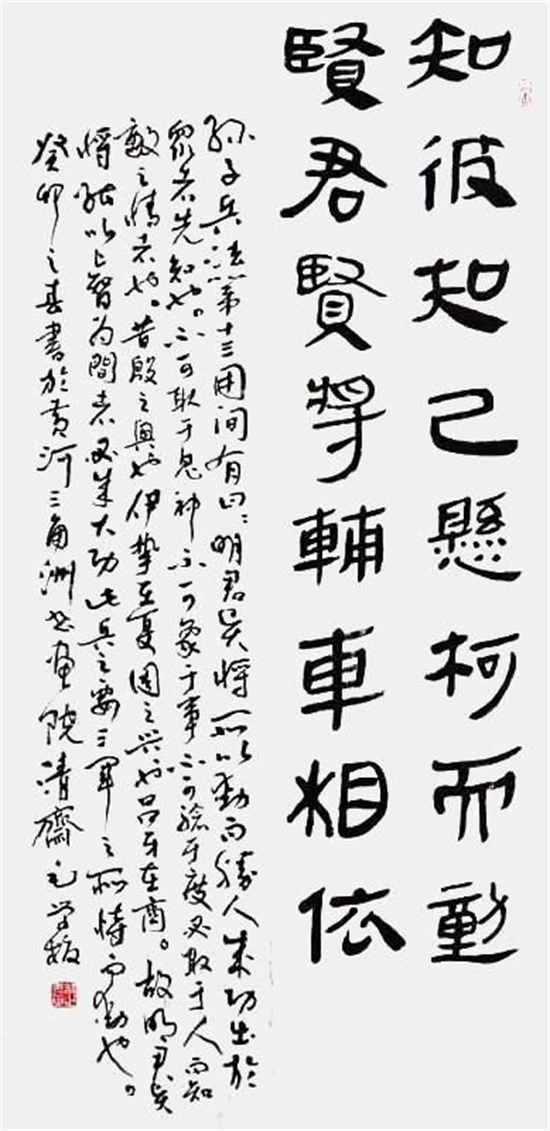 知彼知己懸柯而動
賢君賢將輔車相依
孫子兵法第十三用间有曰：明君贤将所以動而勝人成功出於
眾者先知也。不可取于鬼神不可象于事不可驗于度必取于人而知
敵之情者也。昔殷之興也伊挚在夏周之兴也吕牙在商。故明君贤
将能以上智为間者必成大功此兵之要三军之所恃而動也。
癸卯之春書於黄河三角洲书画院清齋